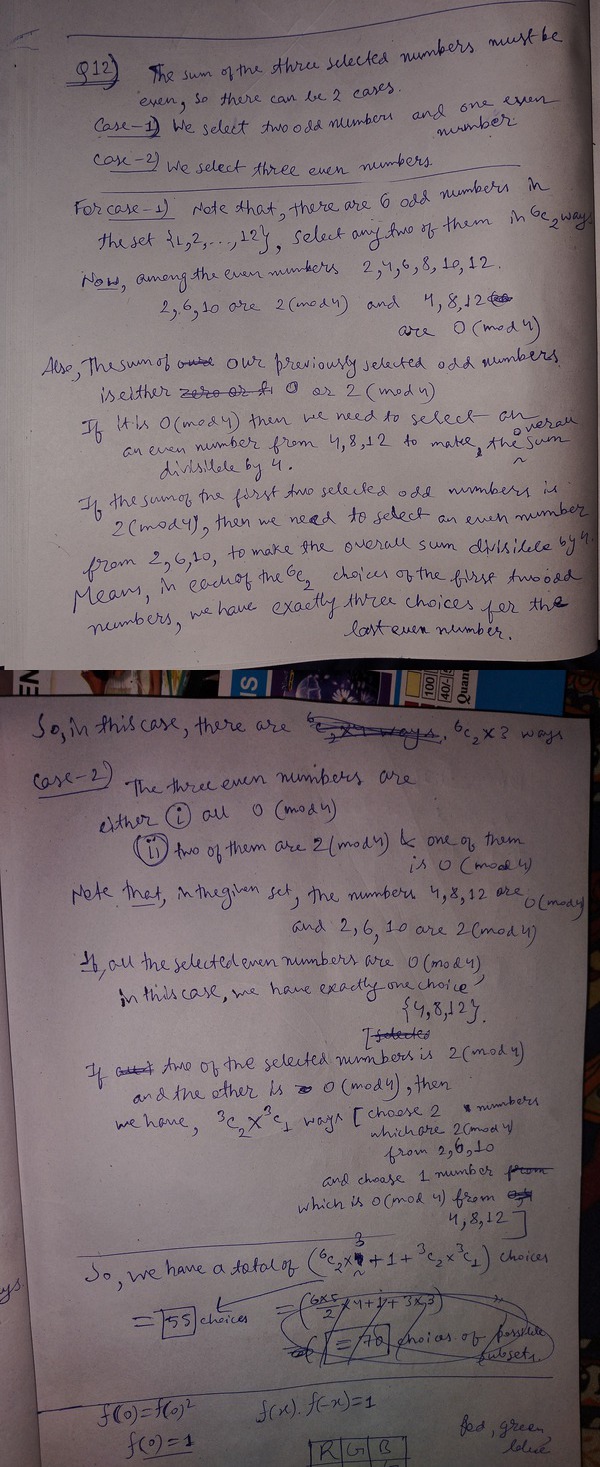 Q12) The sum of the three selected numbers must be
even, so there can be 2 cases.
Case-1) We select two odd numbers and one even
number.
Case-2) We select three even numbers.
For case-1) Note that, there are 6 odd numbers in
the set {1,2,...,12}, select any two of them in ⁶C₂ ways
Now, among the even numbers 2,4,6,8,10,12.
2,6,10 are 2(mod 4) and 4,8,12
are 0(mod 4)
Also, The sum of our previously selected odd numbers
is either zero or 0 or 2(mod 4)
If it is 0(mod 4) then we need to select an
an even number from 4,8,12 to make, the overall sum
divisible by 4.
If the sum of the first two selected odd numbers is
2(mod 4), then we need to select an even number
from 2,6,10, to make the overall sum divisible by 4.
Means, in each of the ⁶C₂ choices of the first two odd
numbers, we have exactly three choices for the
last even number.
EN
IS
100
40/-
Quan
So, in this case, there are ⁶C₂×4 ways. ⁶C₂×3 ways
Case-2) The three even numbers are
either (i) all 0(mod 4)
(ii) two of them are 2(mod 4) & one of them
is 0(mod 4)
Note that, in the given set, the numbers 4,8,12 are 0(mod 4)
and 2,6,10 are 2(mod 4)
If, all the selected even numbers are 0(mod 4),
in this case, we have exactly one choice
{4,8,12}.
[selected
If two of the selected numbers is 2(mod 4)
and the other is 0(mod 4), then
we have, ³C₂×³C₁ ways [choose 2 numbers
which are 2(mod 4)
from 2,6,10
and choose 1 number from
which is 0(mod 4) from
4,8,12]
So, we have a total of (⁶C₂×3+1+³C₂×³C₁) choices
= 55 choices = (6×5/2 ×4+1+3×3)
= 70 choices of possible
subsets.
ys.
f(0)=f(0)² f(x).f(-x)=1
f(0)=1
Red, green,
blue
R G B